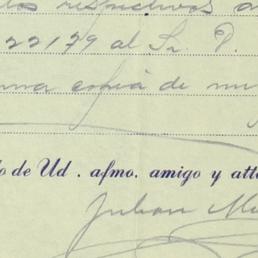 respectivos
22179 al Sr. P.
una copia de mi
o de Ud. afmo. amigo y att
Julian